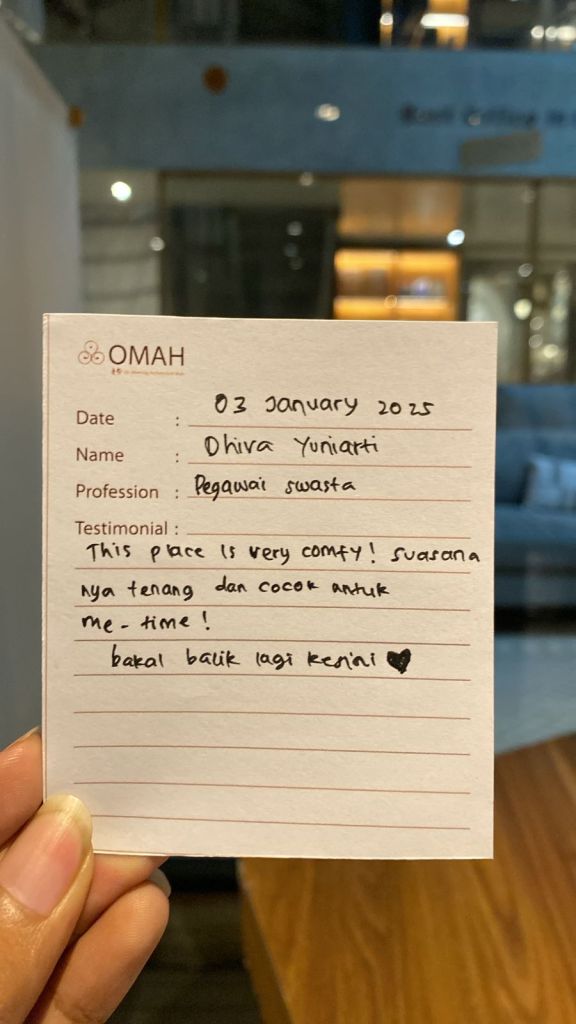 OMAH
Date : 03 January 2025
Name : Dhiva Yuniarti
Profession : Pegawai swasta
Testimonial :
This place is very comfy! suasana
nya tenang dan cocok untuk
me-time!
bakal balik lagi kesini ♥